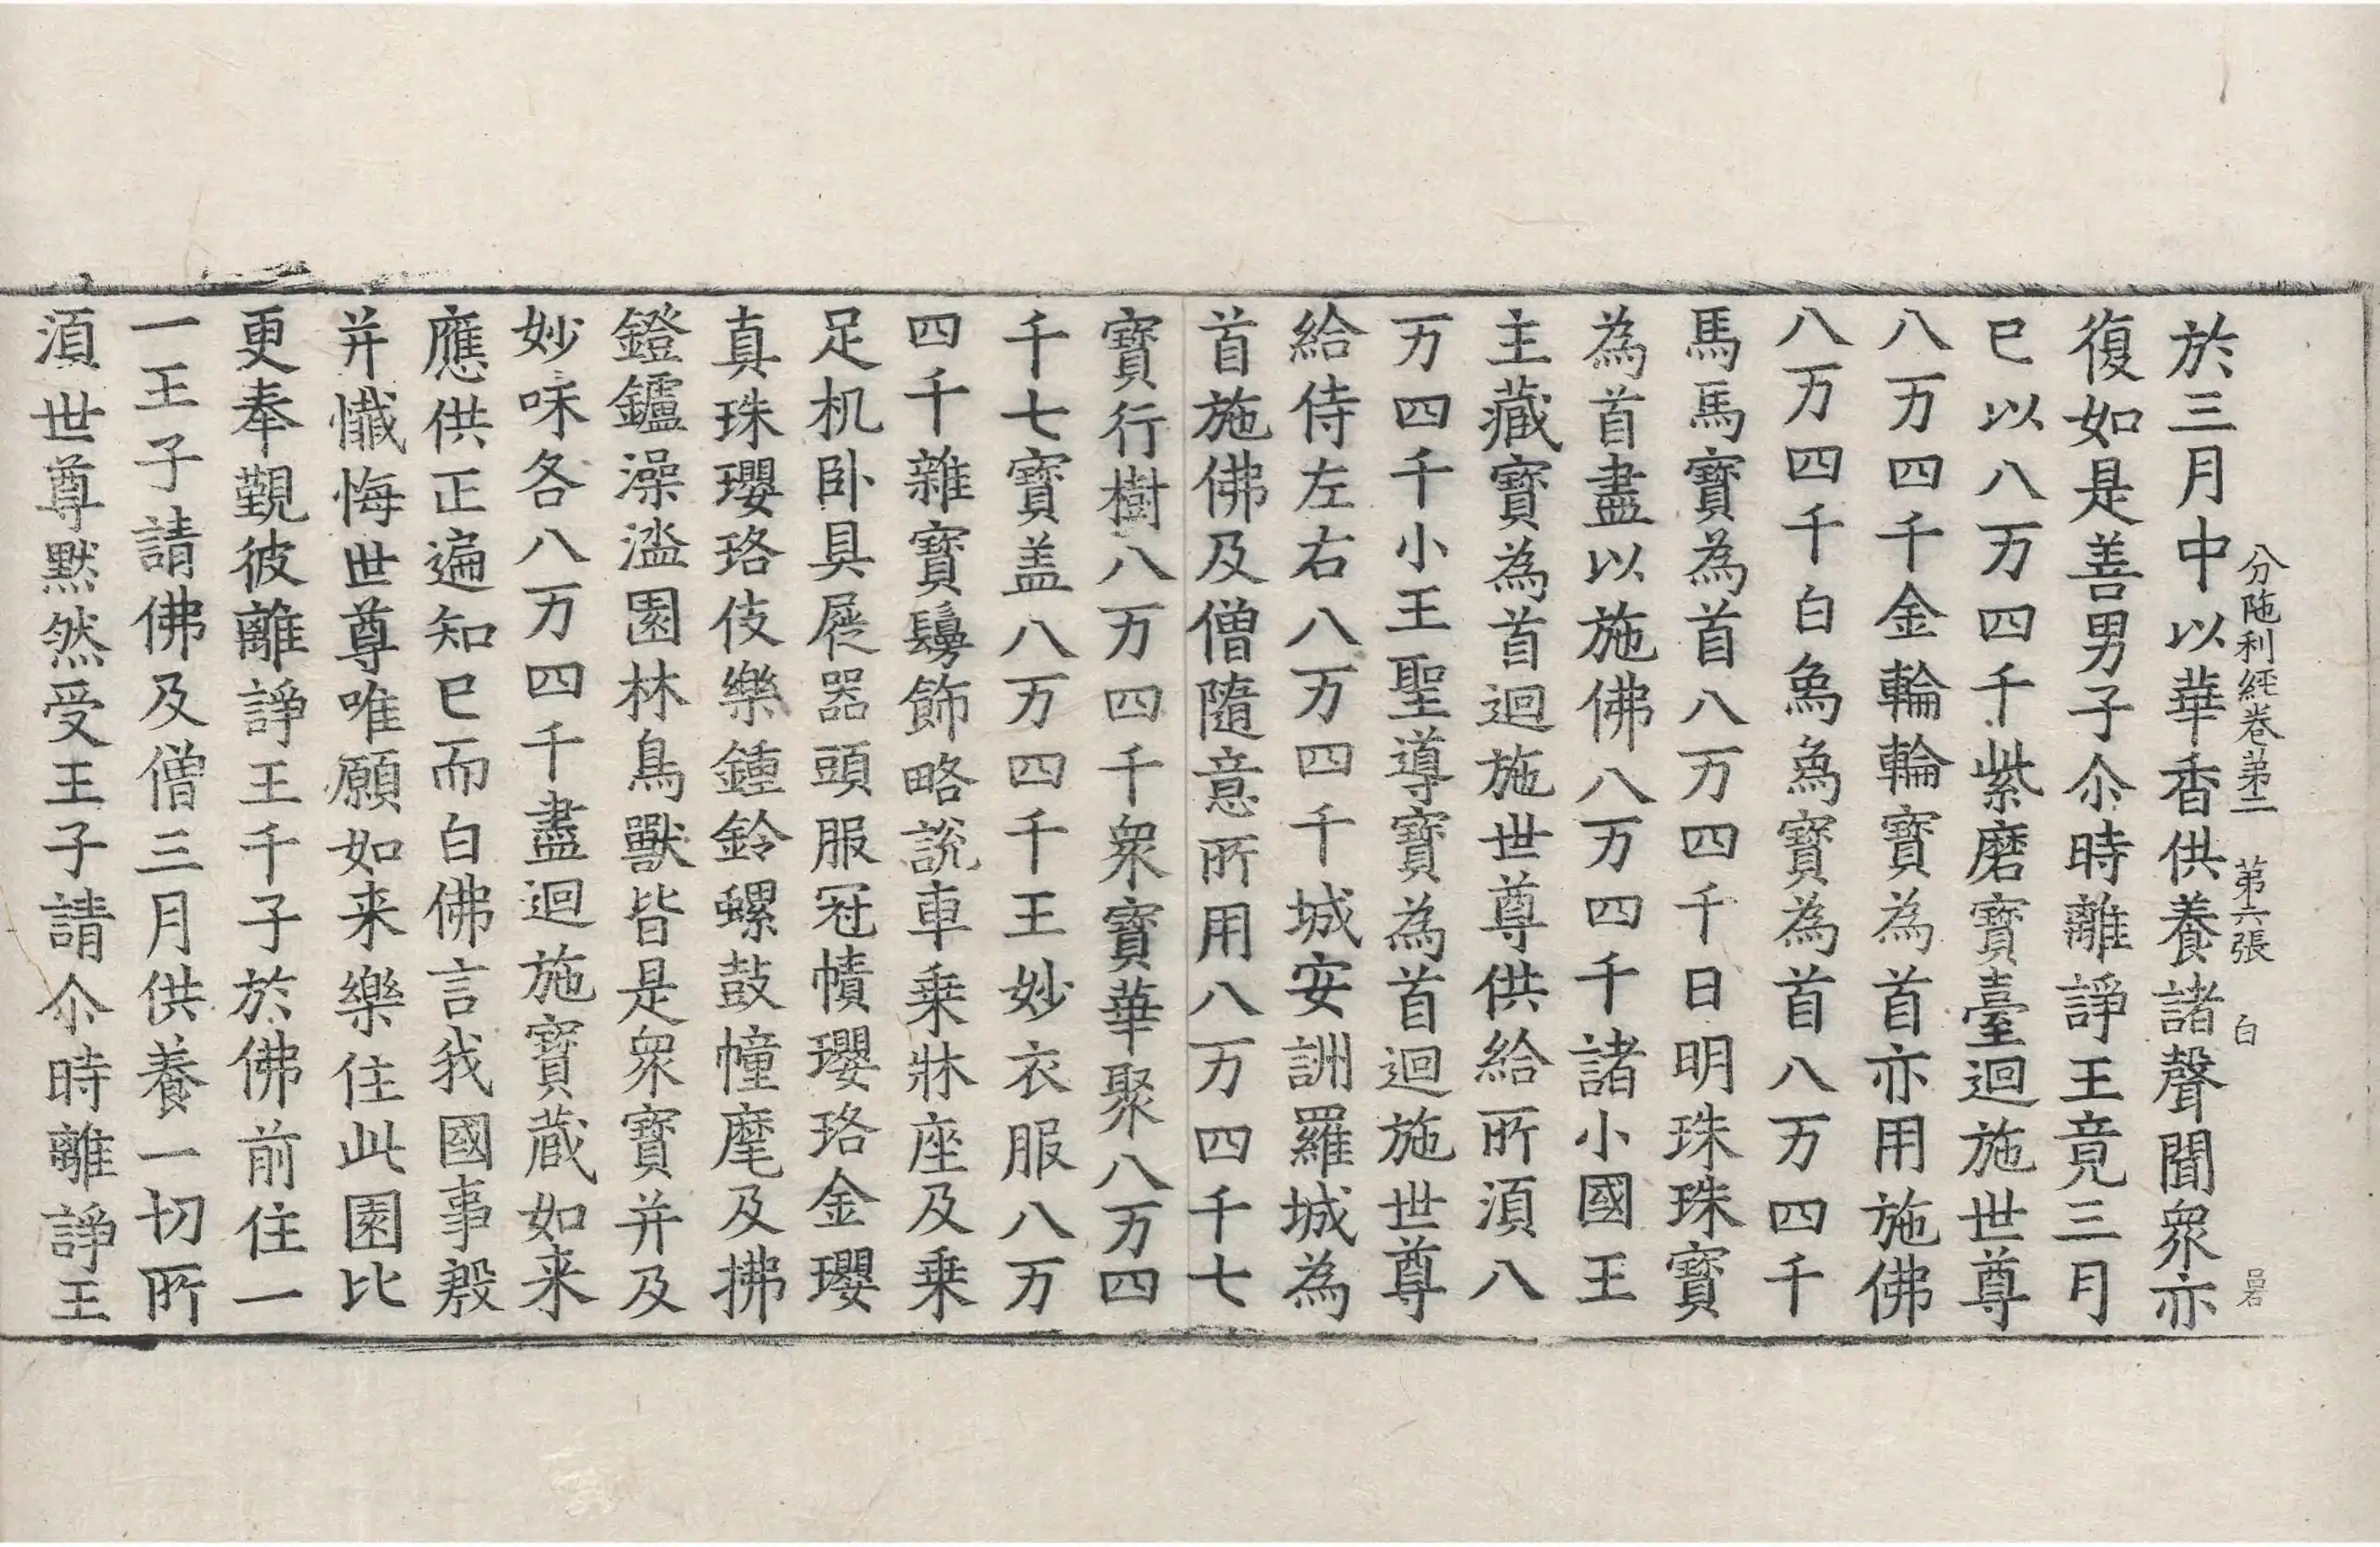 分陁利經卷第二　第六張　白
於三月中以華香供養諸聲聞衆亦
復如是善男子尒時離諍王竟三月
已以八万四千紫磨寶臺迴施世尊
八万四千金輪輪寶為首亦用施佛
八万四千白象象寶為首八万四千
馬馬寶為首八万四千日明珠珠寶
為首盡以施佛八万四千諸小國王
主藏寶為首迴施世尊供給所須八
万四千小王聖導寶為首迴施世尊
給侍左右八万四千城安訓羅城為
首施佛及僧隨意所用八万四千七
寶行樹八万四千衆寶華聚八万四
千七寶盖八万四千王妙衣服八万
四千雜寶鬘飾略說車乗牀座及乗
足机卧具屣器頭服冠幘瓔珞金瓔
真珠瓔珞伎樂鍾鈴螺鼓幢麾及拂
鐙鑪澡盥園林鳥獸皆是衆寶并及
妙味各八万四千盡迴施寶蔵如来
應供正遍知已而白佛言我國事殷
并懺悔世尊唯願如来樂住此園比
更奉覲彼離諍王千子於佛前住一
一王子請佛及僧三月供養一切所
湏世尊默然受王子請尒時離諍王